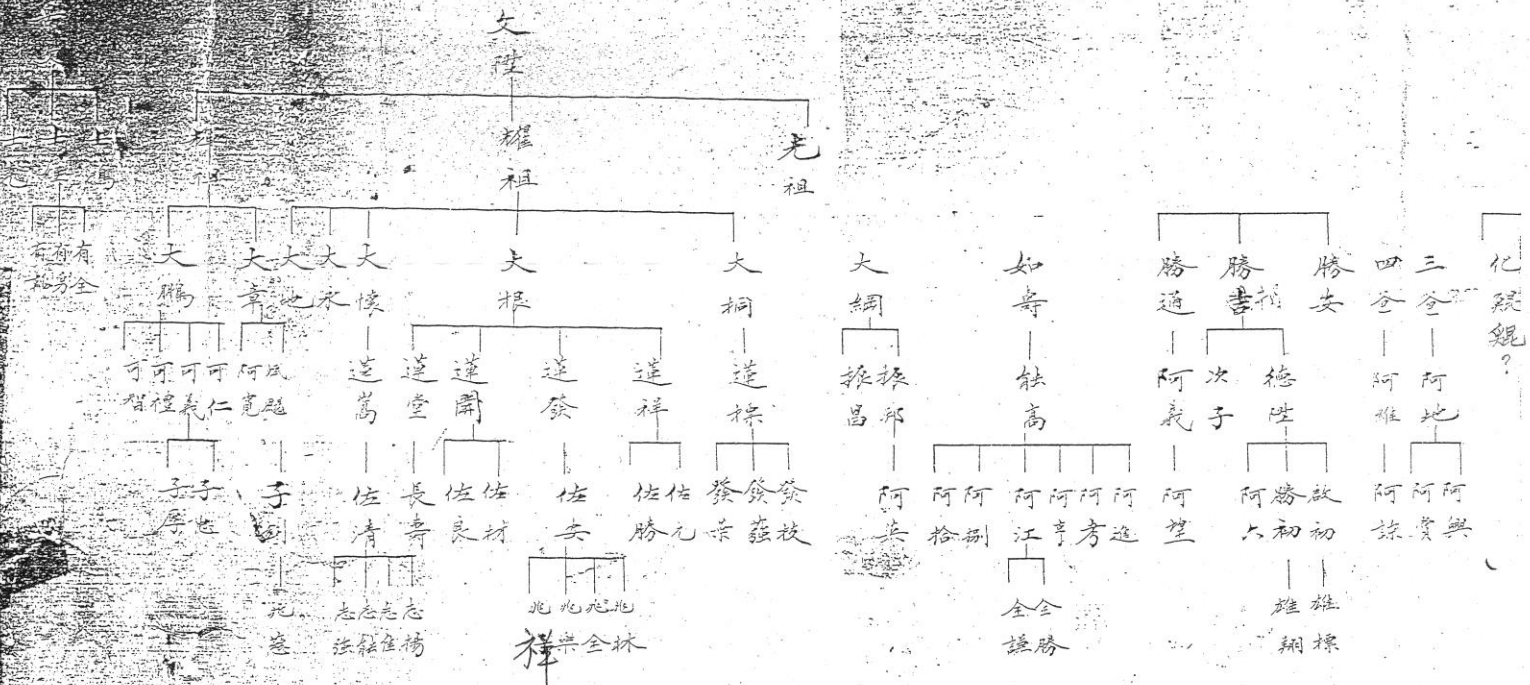 文陞
耀祖
光祖
有全
大鵬
大章
大地
大永
大懷
大根
大桐
大綱
如壽
勝通
勝書
勝安
四爸
三爸
化
鯤?
可智
可禮
可義
可仁
阿寬
蓮嵩
蓮堂
蓮開
蓮發
蓮祥
蓮標
振昌
振邦
能高
阿義
次子
德陞
阿雄
阿地
子厚
子忠
子釗
佐清
長壽
佐良
佐材
佐安
佐勝
佐元
發榮
發枝
阿英
阿拾
阿捌
阿江
阿亨
阿考
阿進
阿望
阿六
勝初
啟初
阿諒
阿賞
阿興
志強
志雄
志揚
兆祥
兆樂
兆全
兆林
全謙
全勝
雄翔
雄標